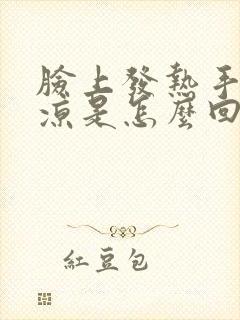 臉上發熱手
涼是怎麼回
紅豆包